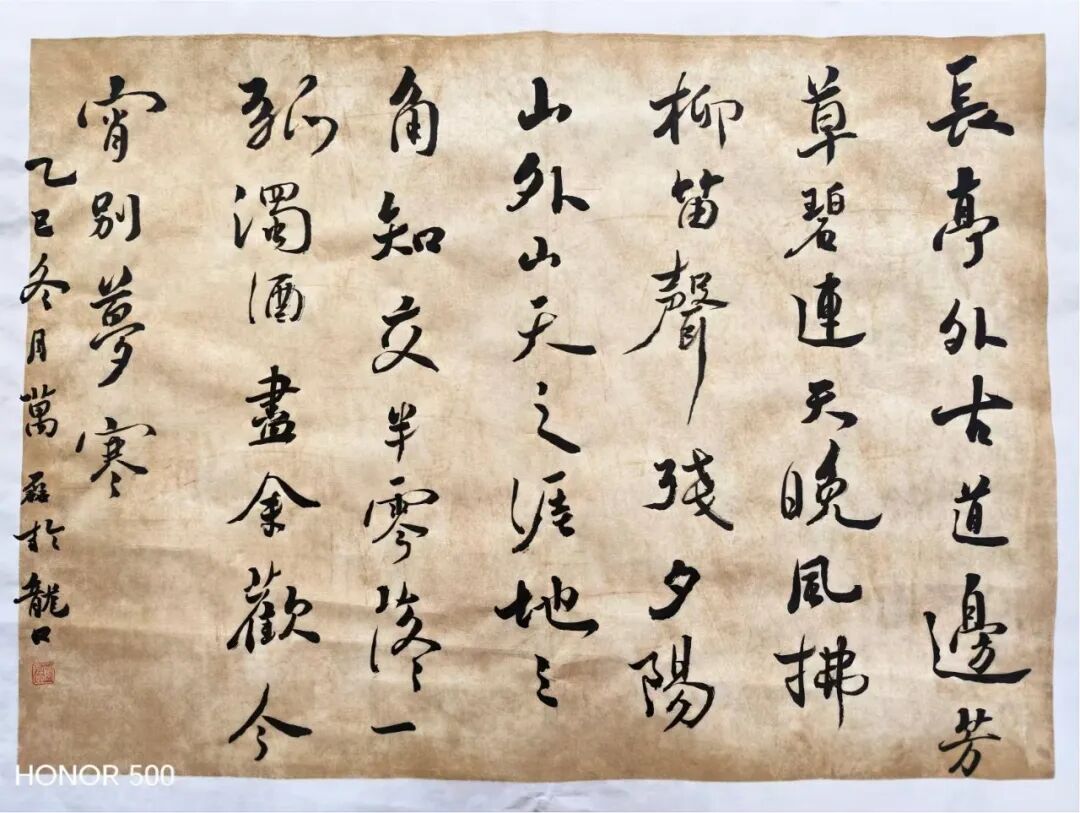 長亭外古道邊芳
草碧連天晚風拂
柳笛聲殘夕陽
山外山天之涯地之
角知交半零落一
濁酒盡余歡今
宵別夢寒
乙巳冬月萬磊於龍口
HONOR 500